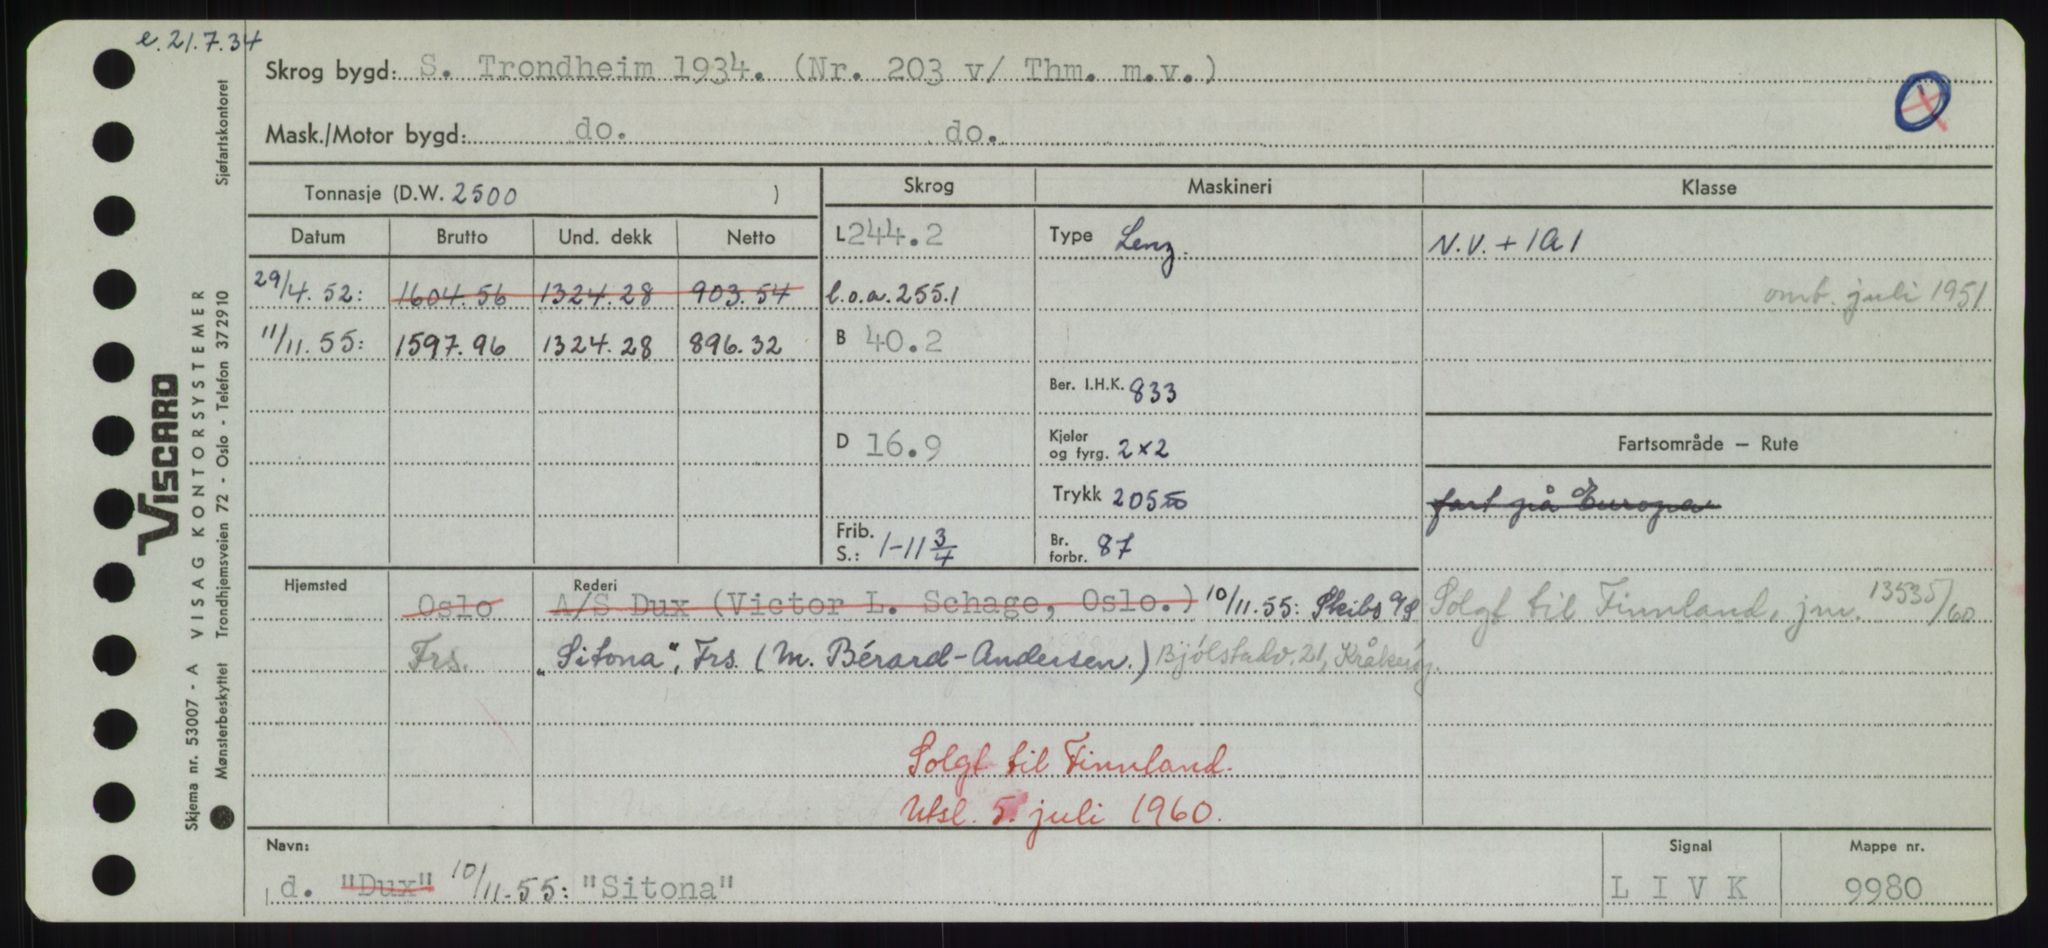 e. 21.7.34
Skrog bygd: S. Trondheim 1934. (Nr. 203 v/ Thm. m.v.)
Mask./Motor bygd: do. do.
Tonnasje (D.W. 2500 )
Skrog Maskineri Klasse
Datum Brutto Und. dekk Netto
L 244.2 Type Lenz. N.V. + 1A1
29/4. 52: 1604.56 1324.28 903.54 l.o.a. 255.1 omb. juli 1951
11/11. 55: 1597.96 1324.28 896.32 B 40.2
Ber. I.H.K. 833
D 16.9 Kjeler og fyrg. 2x2 Fartsområde — Rute
Trykk 205 fart på Europa
Frib. S.: 1-11 3/4 Br. forbr. 87
Hjemsted Rederi
Oslo A/S Dux (Victor L. Schage, Oslo.) 10/11.55: Skibs A/S Solgt til Finnland, jnr. 13535/60
Frs. "Sitona", Frs. (M. Bérard-Andersen.) Bjölstadv. 21, Kråkeröy.
Solgt til Finnland.
Utsl. 5. juli 1960.
Navn: Signal Mappe nr.
d. "Dux" 10/11-55: "Sitona" L I V K 9980
VISCARD
Skjema nr. 53007 - A VISAG KONTORSYSTEMER
Mønsterbeskyttet Trondhjemsveien 72 - Oslo - Telefon 372910 Sjøfartskontoret